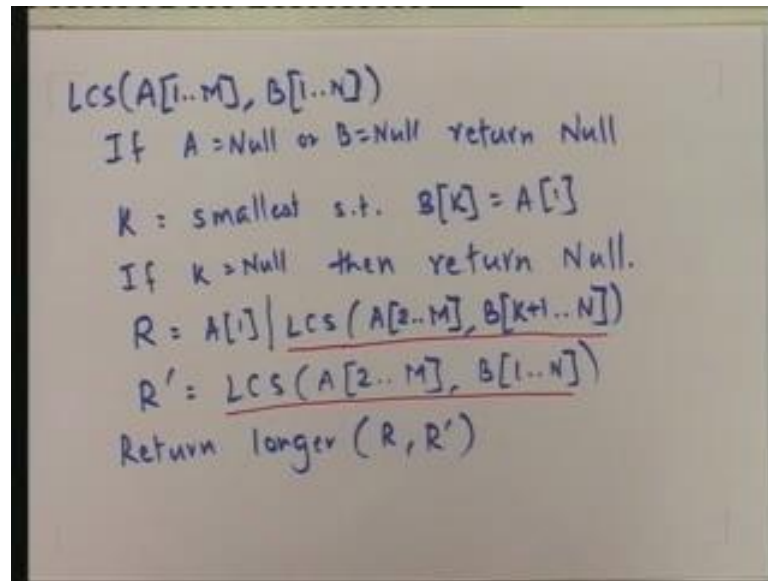 LCS(A[1..M], B[1..N])
If A = Null or B = Null return Null
K = smallest s.t. B[K] = A[1]
If K = Null then return Null.
R = A[1] | LCS(A[2..M], B[K+1..N])
R' = LCS(A[2..M], B[1..N])
Return longer (R, R')